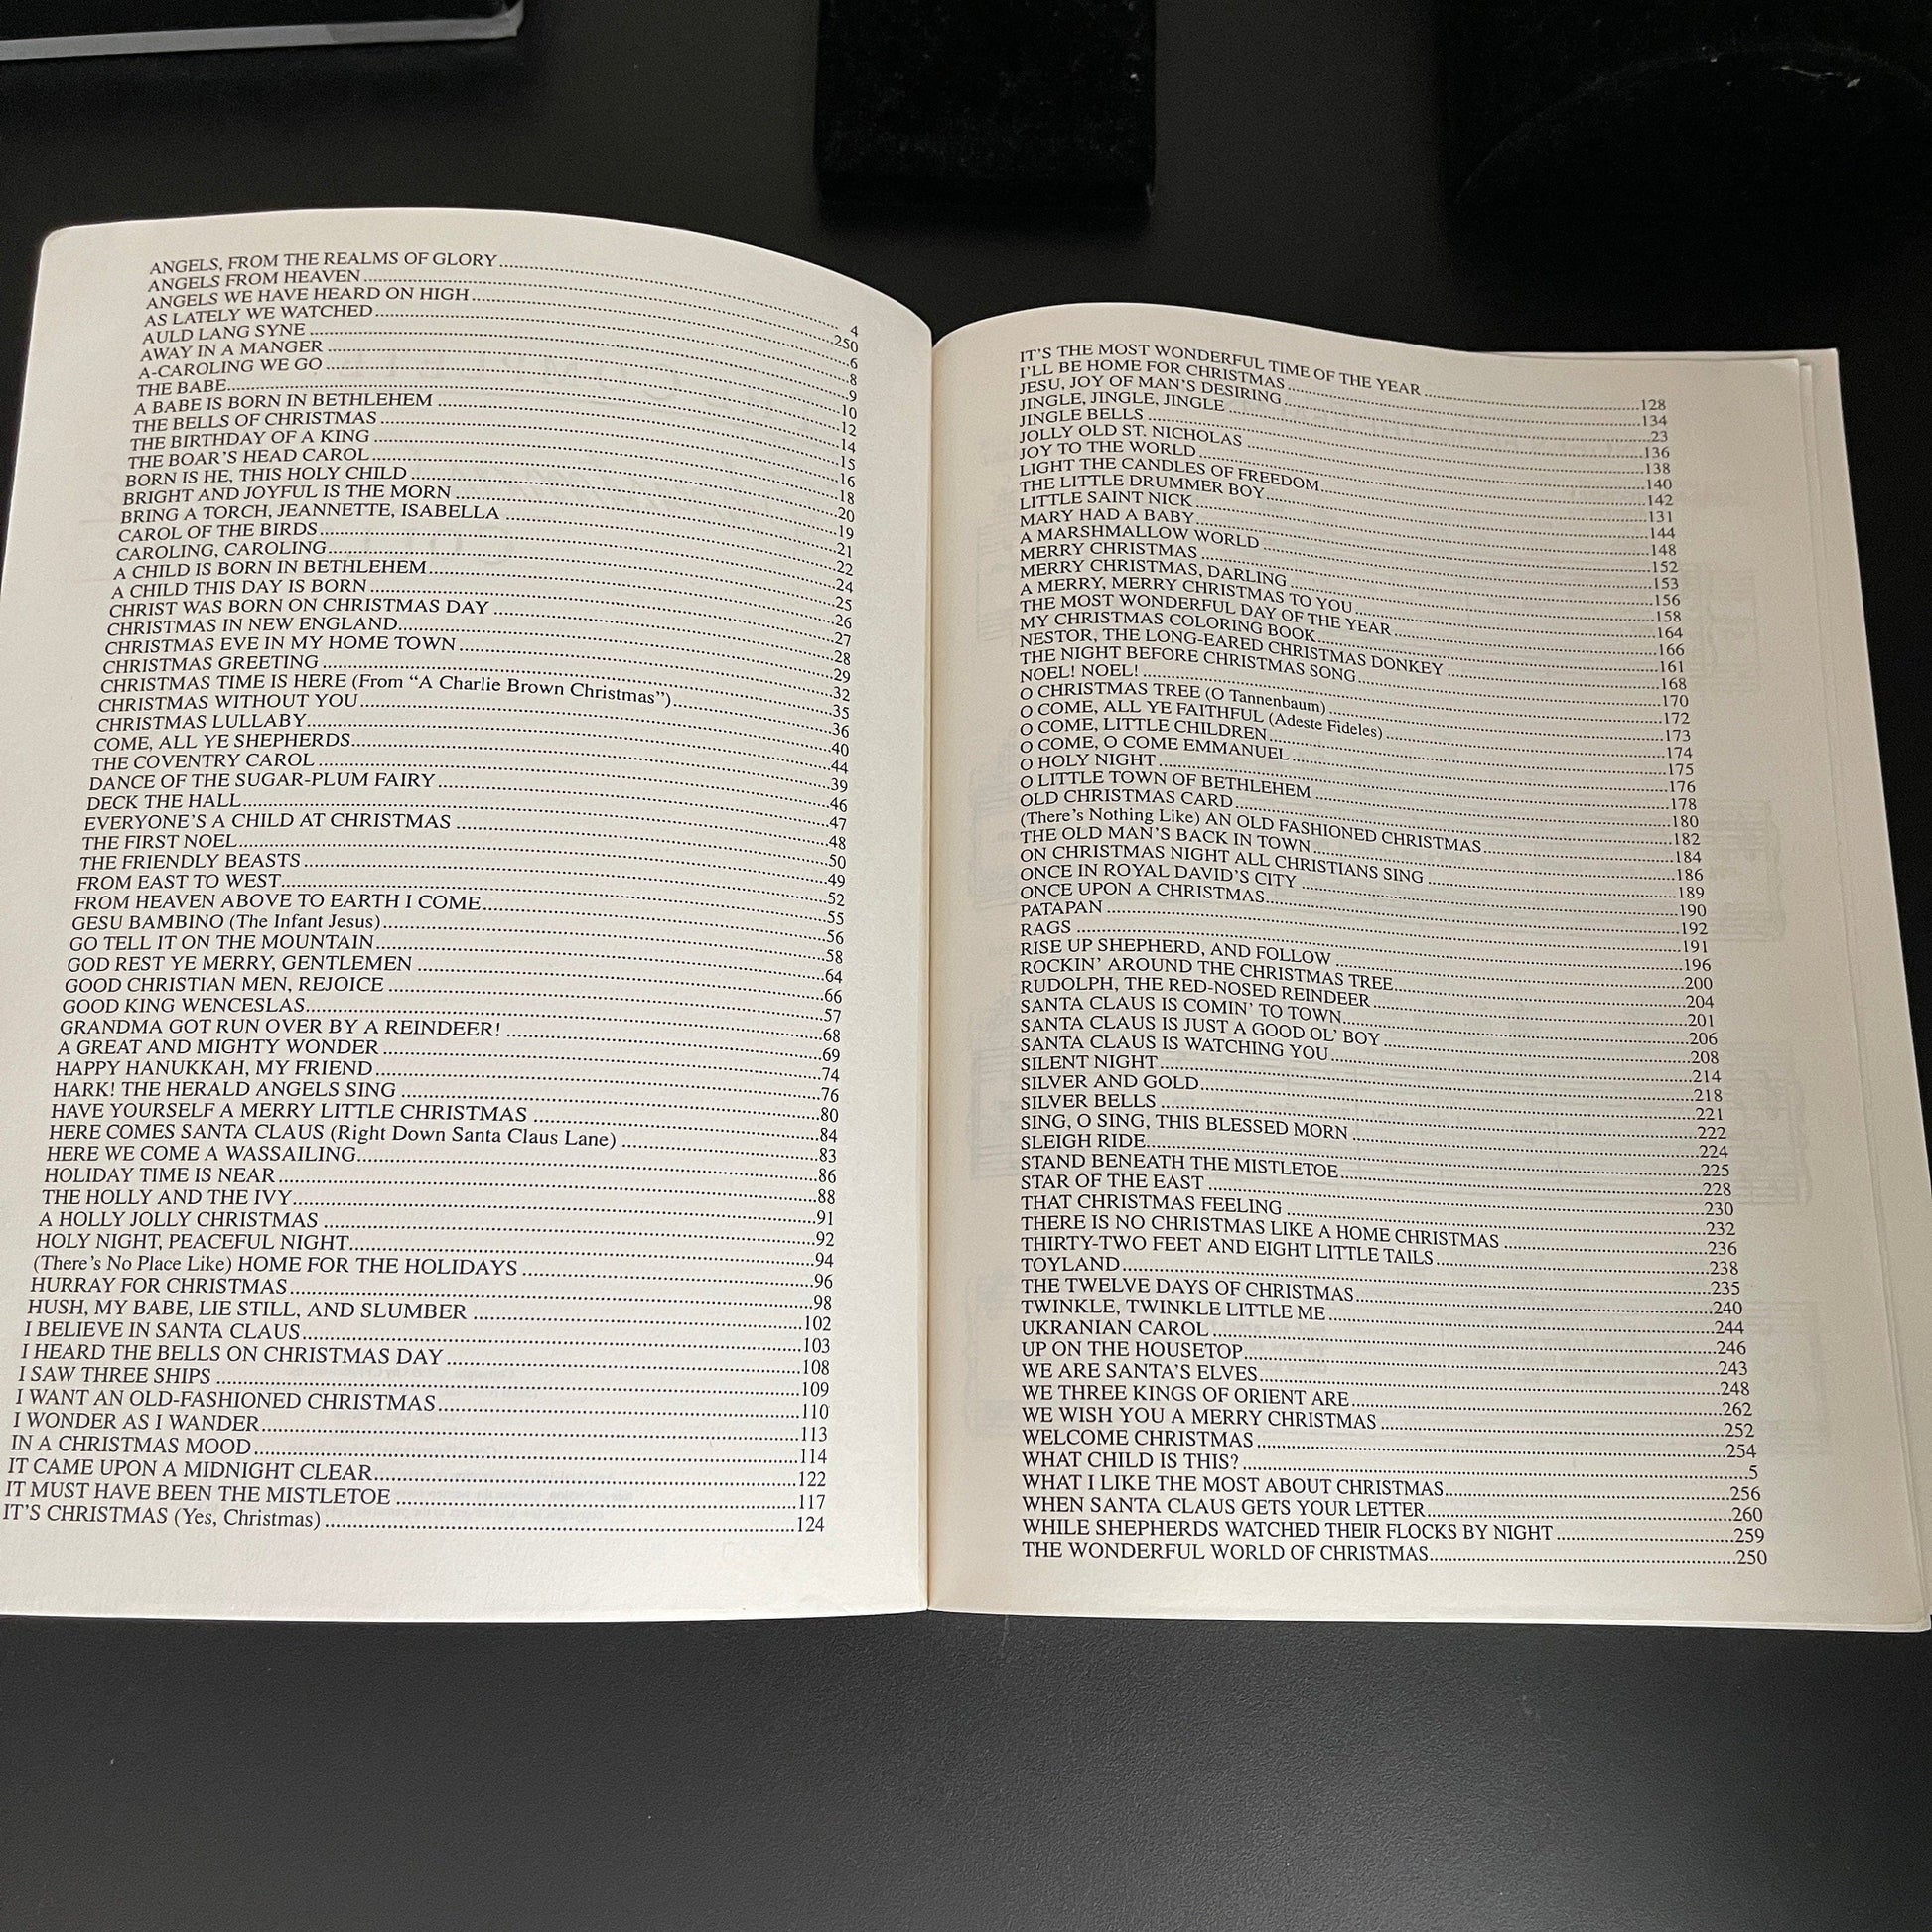 ANGELS, FROM THE REALMS OF GLORY 4
ANGELS FROM HEAVEN 250
ANGELS WE HAVE HEARD ON HIGH 6
AS LATELY WE WATCHED 8
AULD LANG SYNE 9
AWAY IN A MANGER 10
A-CAROLING WE GO 12
THE BABE 14
A BABE IS BORN IN BETHLEHEM 15
THE BELLS OF CHRISTMAS 16
THE BIRTHDAY OF A KING 18
THE BOAR'S HEAD CAROL 20
BORN IS HE, THIS HOLY CHILD 19
BRIGHT AND JOYFUL IS THE MORN 21
BRING A TORCH, JEANNETTE, ISABELLA 22
CAROL OF THE BIRDS 24
CAROLING, CAROLING 25
A CHILD IS BORN IN BETHLEHEM 26
A CHILD THIS DAY IS BORN 27
CHRIST WAS BORN ON CHRISTMAS DAY 28
CHRISTMAS IN NEW ENGLAND 29
CHRISTMAS EVE IN MY HOME TOWN 32
CHRISTMAS GREETING 35
CHRISTMAS TIME IS HERE (From "A Charlie Brown Christmas") 36
CHRISTMAS WITHOUT YOU 40
CHRISTMAS LULLABY 44
COME, ALL YE SHEPHERDS 39
THE COVENTRY CAROL 46
DANCE OF THE SUGAR-PLUM FAIRY 47
DECK THE HALL 48
EVERYONE'S A CHILD AT CHRISTMAS 50
THE FIRST NOEL 49
THE FRIENDLY BEASTS 52
FROM EAST TO WEST 55
FROM HEAVEN ABOVE TO EARTH I COME 56
GESU BAMBINO (The Infant Jesus) 58
GO TELL IT ON THE MOUNTAIN 64
GOD REST YE MERRY, GENTLEMEN 66
GOOD CHRISTIAN MEN, REJOICE 57
GOOD KING WENCESLAS 68
GRANDMA GOT RUN OVER BY A REINDEER! 69
A GREAT AND MIGHTY WONDER 74
HAPPY HANUKKAH, MY FRIEND 76
HARK! THE HERALD ANGELS SING 80
HAVE YOURSELF A MERRY LITTLE CHRISTMAS 84
HERE COMES SANTA CLAUS (Right Down Santa Claus Lane) 83
HERE WE COME A WASSAILING 86
HOLIDAY TIME IS NEAR 88
THE HOLLY AND THE IVY 91
A HOLLY JOLLY CHRISTMAS 92
HOLY NIGHT, PEACEFUL NIGHT 94
(There's No Place Like) HOME FOR THE HOLIDAYS 96
HURRAY FOR CHRISTMAS 98
HUSH, MY BABE, LIE STILL, AND SLUMBER 102
I BELIEVE IN SANTA CLAUS 103
I HEARD THE BELLS ON CHRISTMAS DAY 108
I SAW THREE SHIPS 109
I WANT AN OLD-FASHIONED CHRISTMAS 110
I WONDER AS I WANDER 113
IN A CHRISTMAS MOOD 114
IT CAME UPON A MIDNIGHT CLEAR 122
IT MUST HAVE BEEN THE MISTLETOE 117
IT'S CHRISTMAS (Yes, Christmas) 124
IT'S THE MOST WONDERFUL TIME OF THE YEAR 128
I'LL BE HOME FOR CHRISTMAS 134
JESU, JOY OF MAN'S DESIRING 23
JINGLE, JINGLE, JINGLE 136
JINGLE BELLS 138
JOLLY OLD ST. NICHOLAS 140
JOY TO THE WORLD 142
LIGHT THE CANDLES OF FREEDOM 131
THE LITTLE DRUMMER BOY 144
LITTLE SAINT NICK 148
MARY HAD A BABY 152
A MARSHMALLOW WORLD 153
MERRY CHRISTMAS 156
MERRY CHRISTMAS, DARLING 158
A MERRY, MERRY CHRISTMAS TO YOU 164
THE MOST WONDERFUL DAY OF THE YEAR 166
MY CHRISTMAS COLORING BOOK 161
NESTOR, THE LONG-EARED CHRISTMAS DONKEY 168
THE NIGHT BEFORE CHRISTMAS SONG 170
NOEL! NOEL! 172
O CHRISTMAS TREE (O Tannenbaum) 173
O COME, ALL YE FAITHFUL (Adeste Fideles) 174
O COME, LITTLE CHILDREN 175
O COME, O COME EMMANUEL 176
O HOLY NIGHT 178
O LITTLE TOWN OF BETHLEHEM 180
OLD CHRISTMAS CARD 182
(There's Nothing Like) AN OLD FASHIONED CHRISTMAS 184
THE OLD MAN'S BACK IN TOWN 186
ON CHRISTMAS NIGHT ALL CHRISTIANS SING 189
ONCE IN ROYAL DAVID'S CITY 190
ONCE UPON A CHRISTMAS 192
PATAPAN 191
RAGS 196
RISE UP SHEPHERD, AND FOLLOW 200
ROCKIN' AROUND THE CHRISTMAS TREE 204
RUDOLPH, THE RED-NOSED REINDEER 201
SANTA CLAUS IS COMIN' TO TOWN 206
SANTA CLAUS IS JUST A GOOD OL' BOY 208
SANTA CLAUS IS WATCHING YOU 214
SILENT NIGHT 218
SILVER AND GOLD 221
SILVER BELLS 222
SING, O SING, THIS BLESSED MORN 224
SLEIGH RIDE 225
STAND BENEATH THE MISTLETOE 228
STAR OF THE EAST 230
THAT CHRISTMAS FEELING 232
THERE IS NO CHRISTMAS LIKE A HOME CHRISTMAS 236
THIRTY-TWO FEET AND EIGHT LITTLE TAILS 238
TOYLAND 235
THE TWELVE DAYS OF CHRISTMAS 240
TWINKLE, TWINKLE LITTLE ME 244
UKRANIAN CAROL 246
UP ON THE HOUSETOP 243
WE ARE SANTA'S ELVES 248
WE THREE KINGS OF ORIENT ARE 262
WE WISH YOU A MERRY CHRISTMAS 252
WELCOME CHRISTMAS 254
WHAT CHILD IS THIS? 5
WHAT I LIKE THE MOST ABOUT CHRISTMAS 256
WHEN SANTA CLAUS GETS YOUR LETTER 260
WHILE SHEPHERDS WATCHED THEIR FLOCKS BY NIGHT 259
THE WONDERFUL WORLD OF CHRISTMAS 250